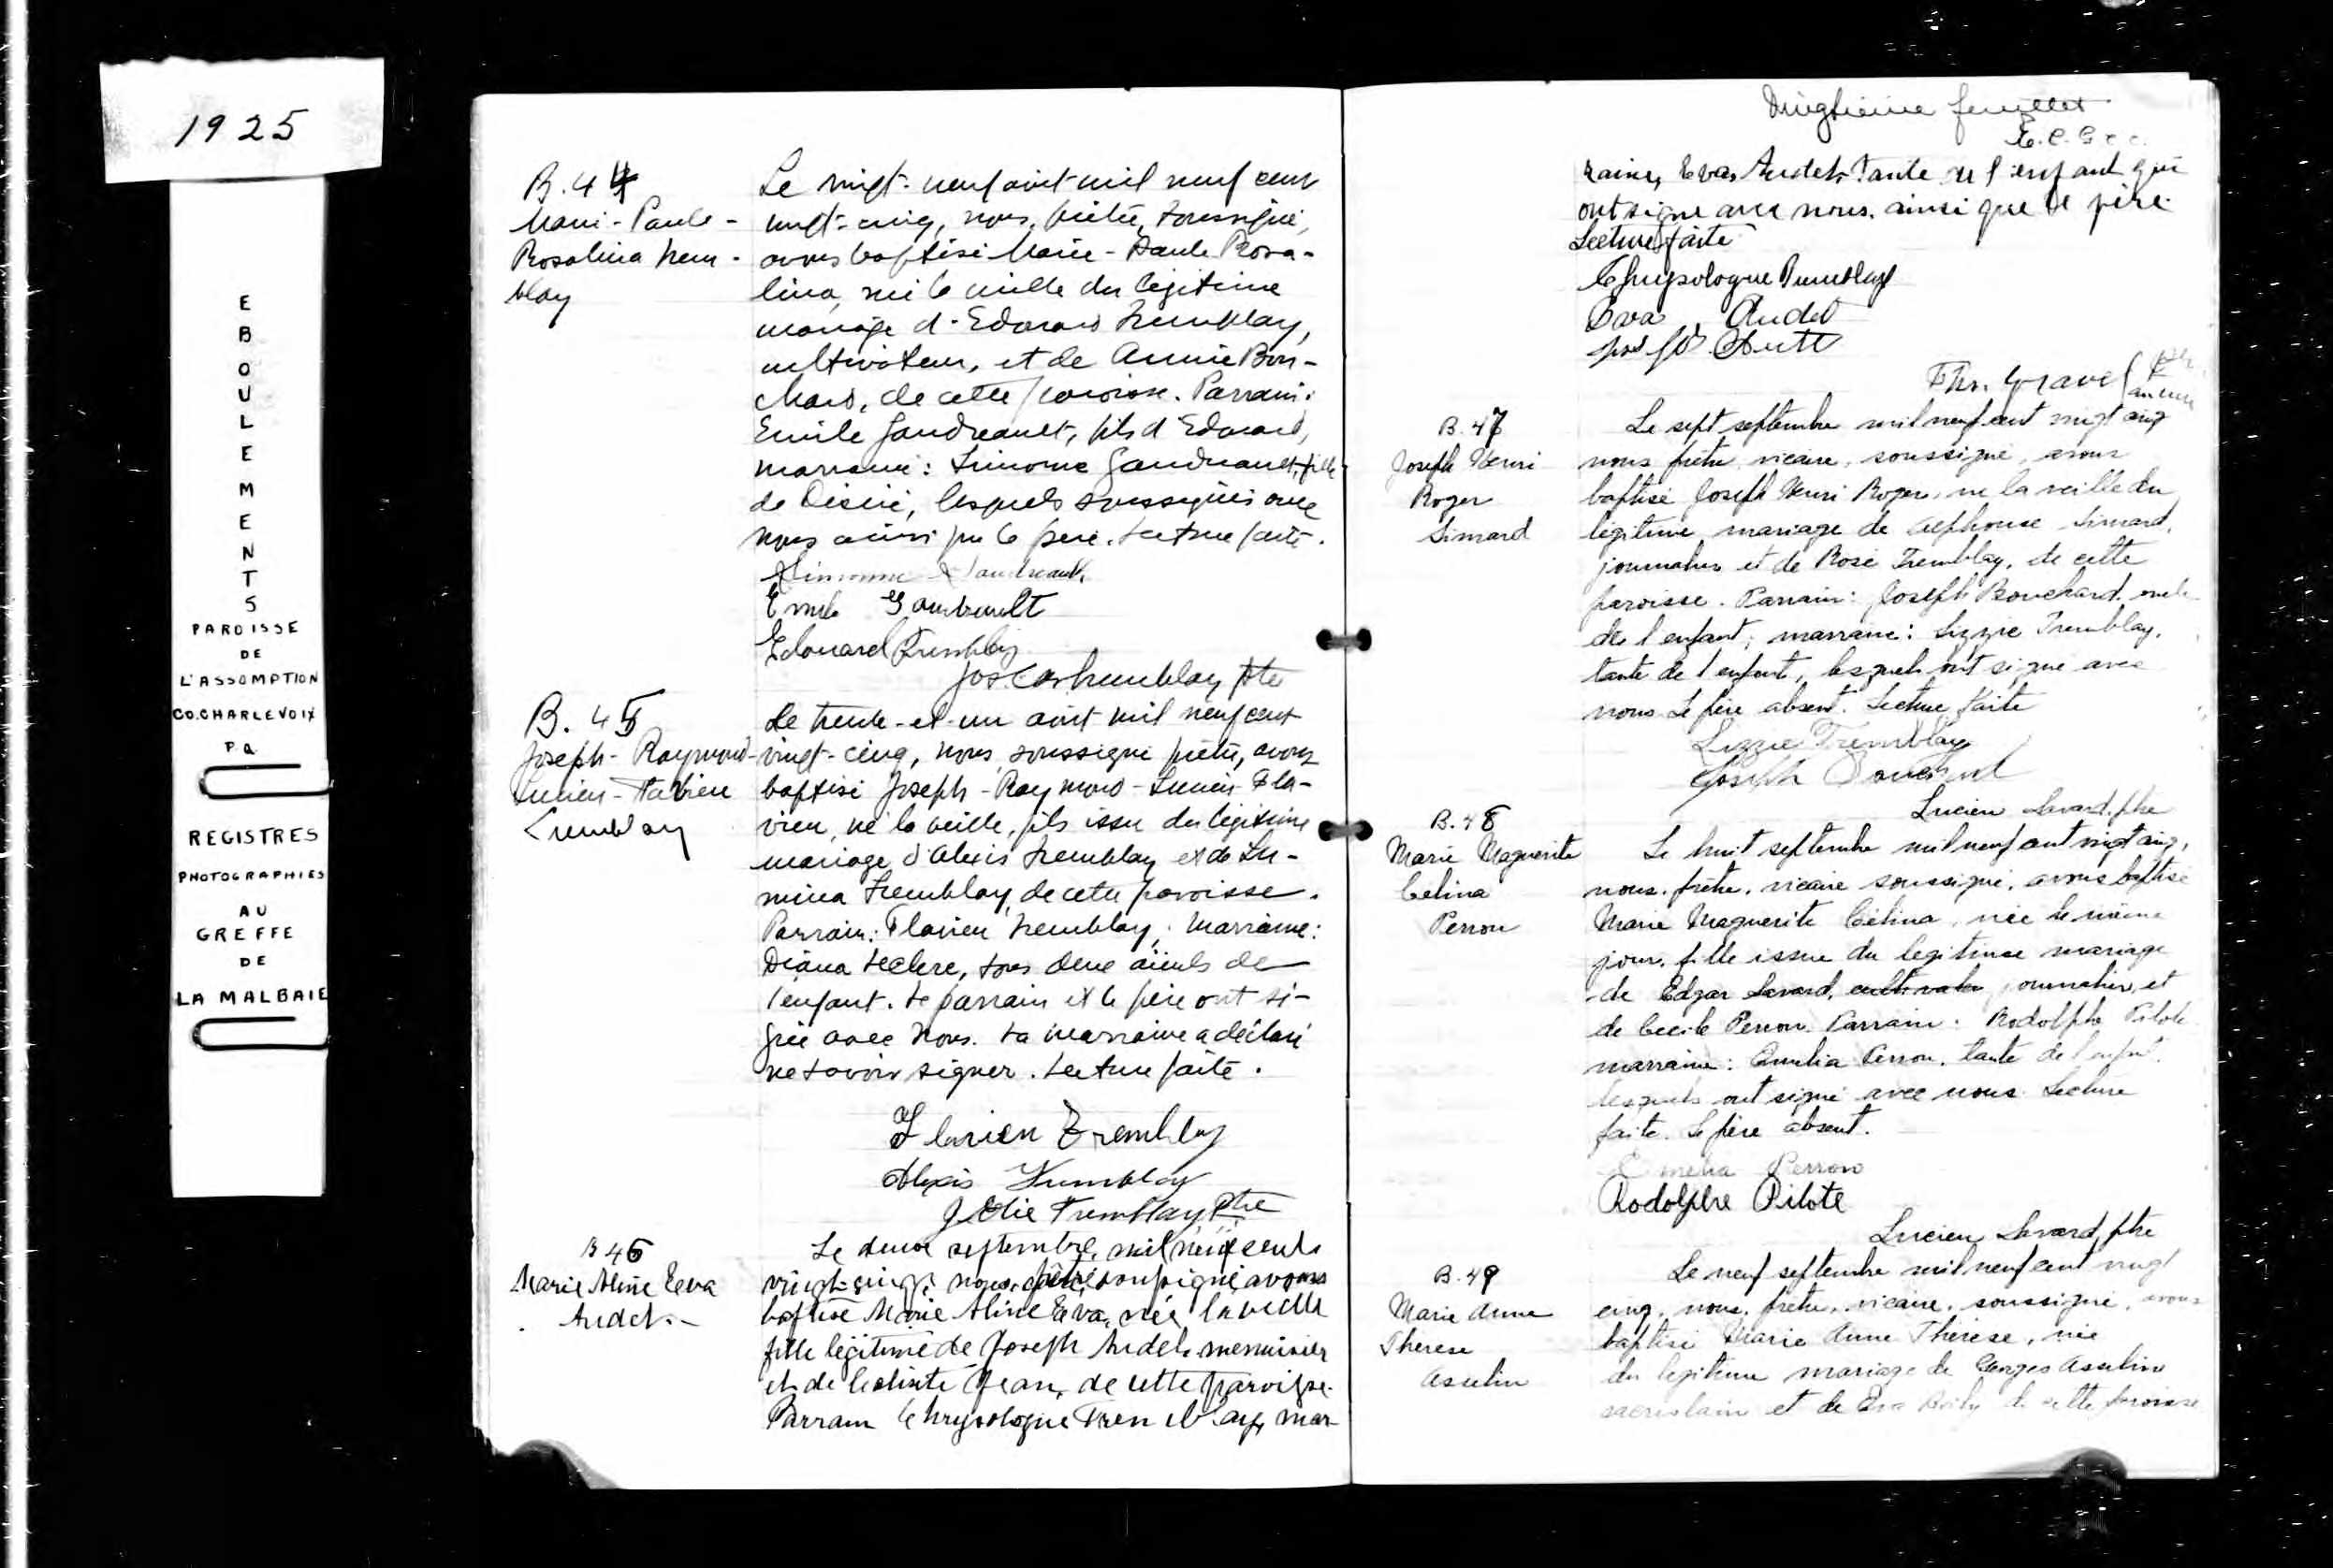 1925
EBOULEMENTS
PAROISSE
DE
L'ASSOMPTION
CO. CHARLEVOIX
P Q
REGISTRES
PHOTOGRAPHIES
AU
GREFFE
DE
LA MALBAIE
B. 44
Marie-Paule-
Rosalina Trem-
blay
Le vingt-neuf août mil neuf cent
vingt-cinq, nous, prêtre, soussigné,
avons baptisé Marie-Paule Rosa-
lina, née la veille du légitime
mariage d'Edouard Tremblay,
cultivateur, et de Annie Bou-
chard, de cette paroisse. Parrain:
Emile Gaudreault, fils d'Edouard,
marraine: Simonne Gaudreault, fille
de Désiré, lesquels soussignés avec
nous ainsi que le père. Lecture faite.
Simonne Gaudreault
Emile Gaudreault
Edouard Tremblay
Jos. Tremblay Ptre
B. 45
Joseph-Raymond-
Lucien-Flavien
Tremblay
Le trente-et-un août mil neuf cent
vingt-cinq, nous soussigné prêtre, avons
baptisé Joseph-Raymond-Lucien-Fla-
vien, né la veille, fils issu du légitime
mariage d'Alexis Tremblay et de Lu-
mina Tremblay, de cette paroisse.
Parrain: Flavien Tremblay; Marraine:
Diana Leclerc, tous deux aïeuls de
l'enfant. Le parrain et le père ont si-
gné avec nous. La marraine a déclaré
ne savoir signer. Lecture faite.
Flavien Tremblay
Alexis Tremblay
J Elie Tremblay, Ptre
B 46
Marie Aline Eva
Audet.-
Le deux septembre, mil neuf cents
vingt-cinq, nous, prêtre soussigné, avons
baptisé Marie Aline Eva, née la veille
fille légitime de Joseph Audet, menuisier
et de Jean, de cette paroisse.
Parrain Chrysologue Tremblay, mar-
Vingtième feuillet
raine, Eva Audet, Tante de l'enfant qui
ont signé avec nous, ainsi que le père.
Lecture faite
Chrysologue Tremblay
Eva Audet
Ths. Gravel Ptre
B. 47
Joseph Henri
Roger
Simard
Le sept septembre mil neuf cent vingt cinq
nous prêtre, vicaire, soussigné, avons
baptisé Joseph Henri Roger, né la veille du
légitime mariage de Alphonse Simard,
journalier et de Rose Tremblay, de cette
paroisse. Parrain: Joseph Bouchard, oncle
de l'enfant; marraine: Lizzie Tremblay,
tante de l'enfant, lesquels ont signé avec
nous. Le père absent. Lecture faite
Lizzie Tremblay
Joseph Bouchard
Lucien Savard, ptre
B. 48
Marie Maguerite
Celina
Perron
Le huit septembre mil neuf cent vingt cinq,
nous, prêtre, vicaire soussigné, avons baptisé
Marie Maguerite Célina, née le même
jour, fille issue du légitime mariage
de Edgar Savard, cultivateur journalier, et
de Cecile Perron. Parrain: Rodolphe Pilote
marraine: Emelia Perron, tante de l'enfant,
lesquels ont signé avec nous. Lecture
faite. Le père absent.
Emelia Perron
Rodolphe Pilote
Lucien Savard, ptre
B. 49
Marie Anne
Therese
Asselin
Le neuf septembre mil neuf cent vingt
cinq, nous, prêtre, vicaire, soussigné, avons
baptisé Marie Anne Thérese, née
du légitime mariage de Georges Asselin
sacristain et de Eva Boily de cette paroisse